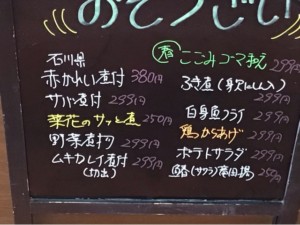 おそうざい
石川県
赤かれい煮付 380円
サバ煮付 299円
菜花のサッと煮 250円
野菜煮物 299円
ムキカレイ煮付 299円
(切出)
春 こごみゴマ和え
299円
ふき煮(身欠にしん入)
299円
白身魚フライ
299円
鶏からあげ 299円
ポテトサラダ 299円
(サワラ)竜田揚 250円